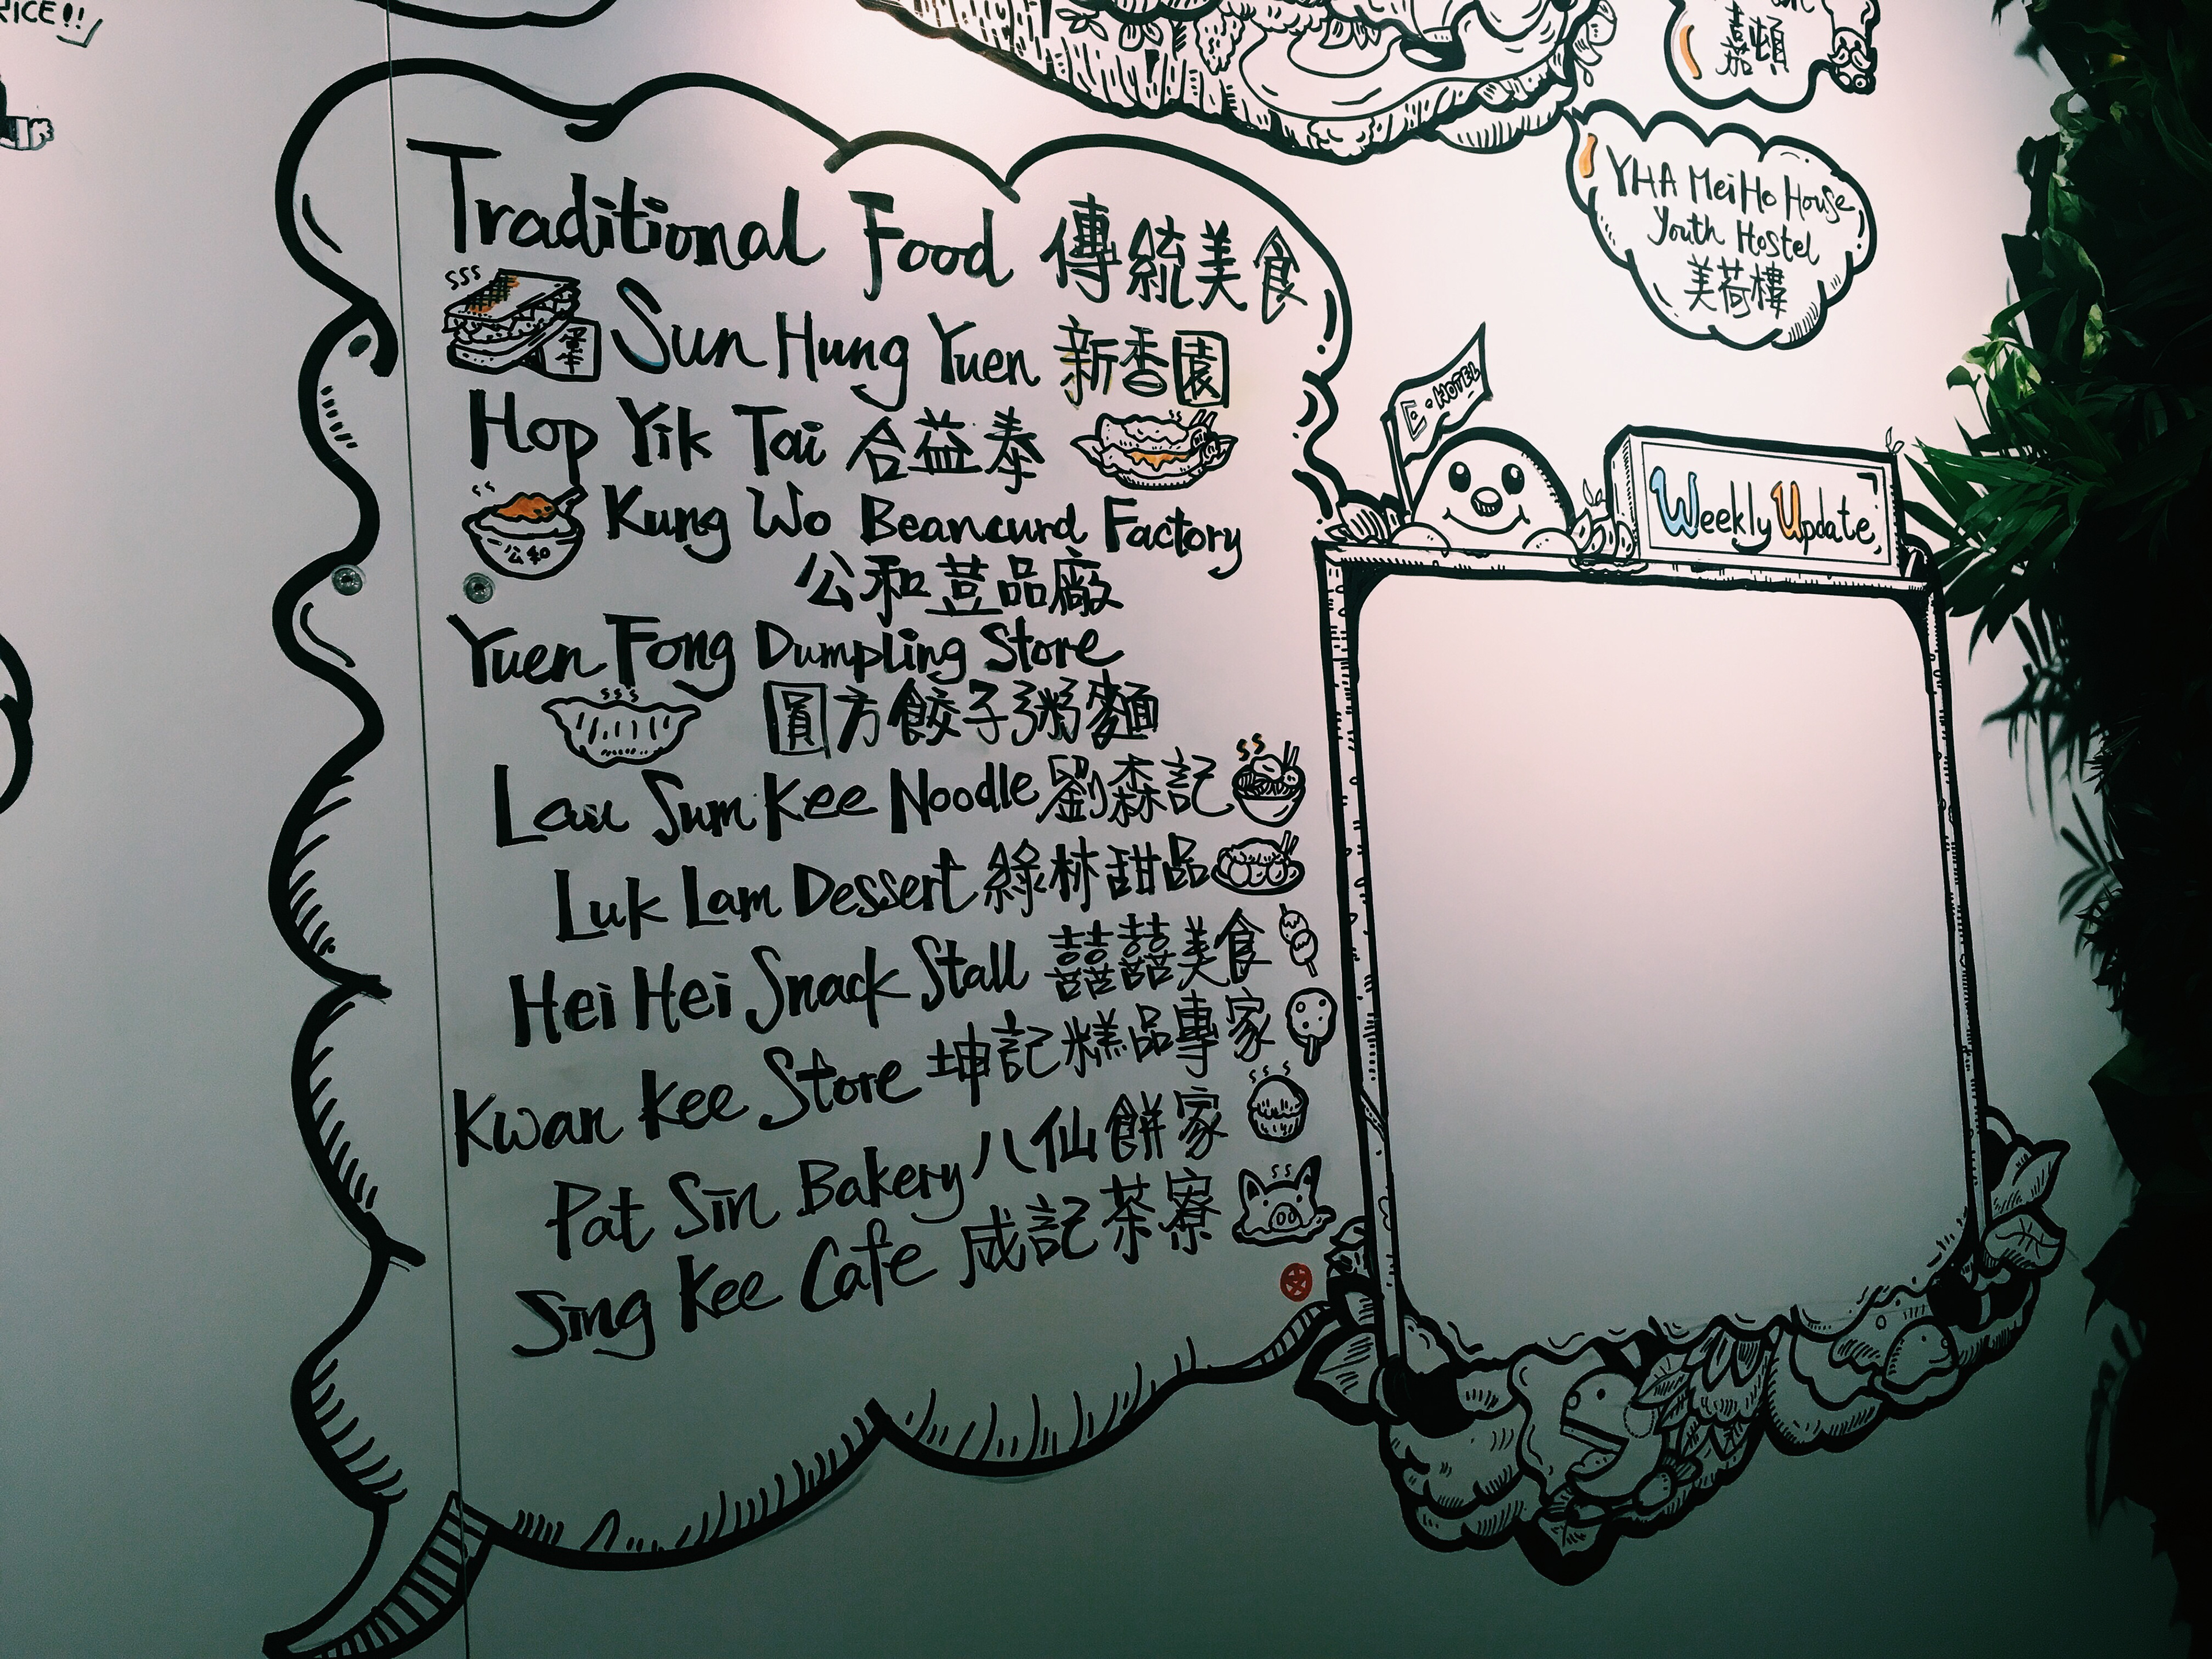 RICE!!
嘉頓
YHA Mei Ho House
Youth Hostel
美荷樓
Traditional Food 傳統美食
Sun Hung Yuen 新香園
Hop Yik Tai 合益泰
Kung Wo Beancurd Factory
公和荳品廠
公和
Yuen Fong Dumpling Store
圓方餃子粥麵
Lau Sum Kee Noodle 劉森記
Luk Lam Dessert 綠林甜品
Hei Hei Snack Stall 囍囍美食
Kwan Kee Store 坤記糕品專家
Pat Sin Bakery 八仙餅家
Sing Kee Cafe 成記茶寮
E·HOTEL
Weekly Update